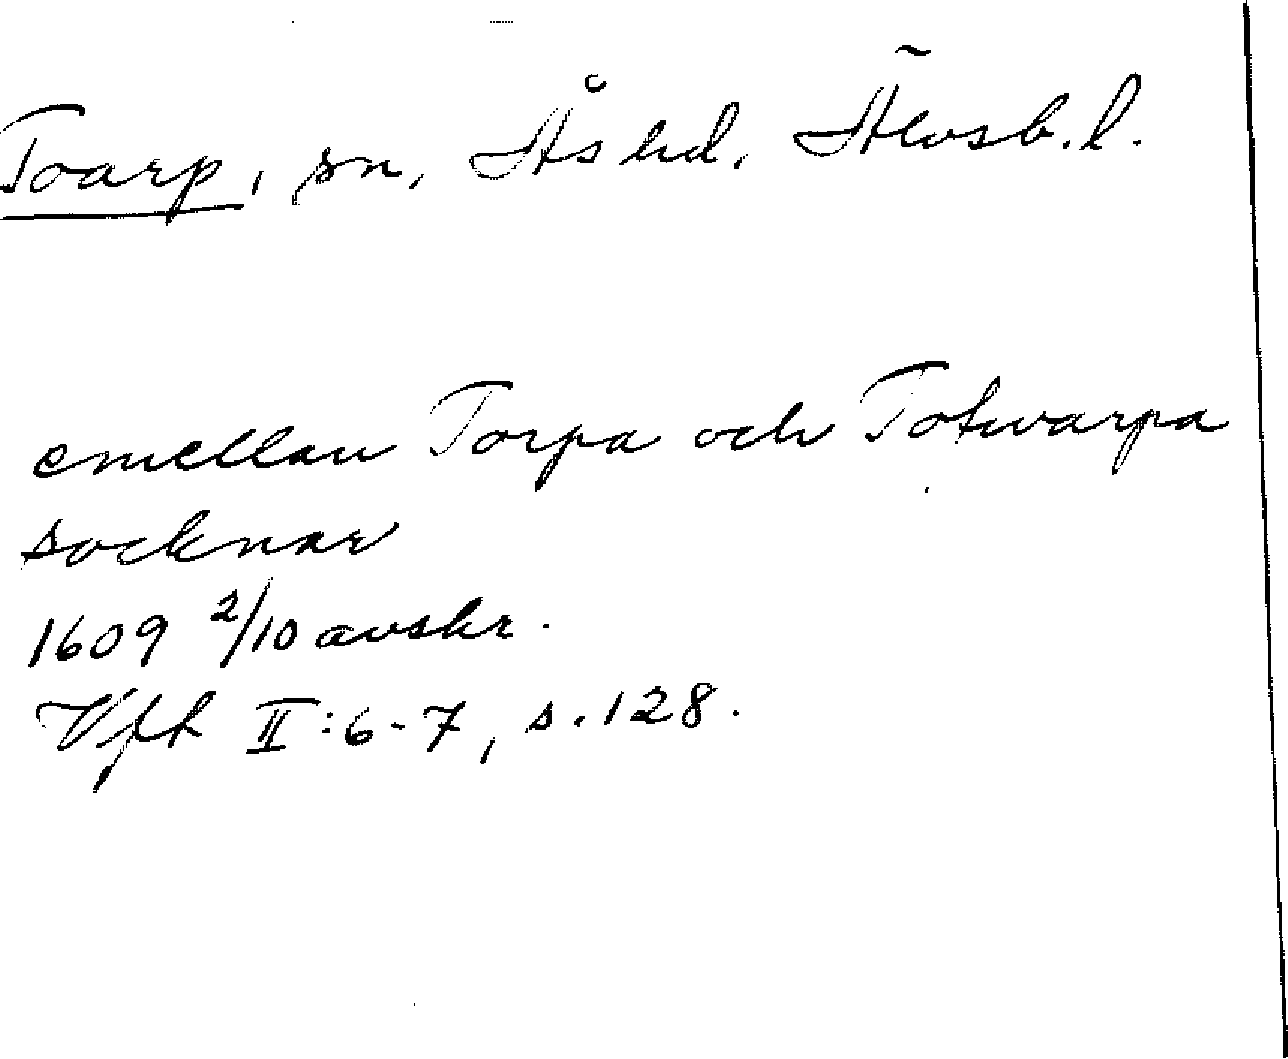 Toarp, sn, Ås hd, Älvsb. l.
emellan Torpa och Totwarpa
socknar
1609 2/10 avskr.
Vfh II:6-7, s. 128.